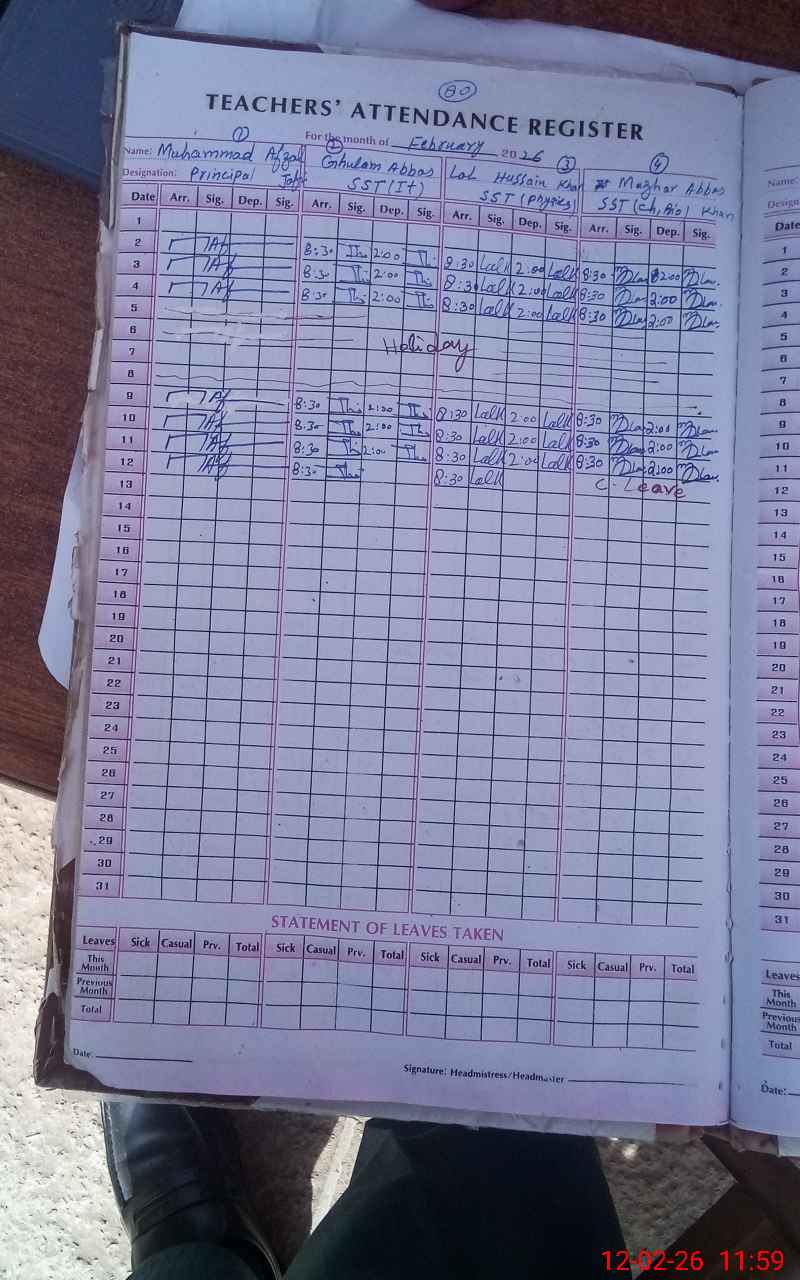 80
TEACHERS' ATTENDANCE REGISTER
For the month of February 2026
1 2 3 4
Name: Muhammad Afzal Ghulam Abbas Lal Hussain Khan Mazhar Abbas Khan
Designation: Principal SST (It) SST (Physics) SST (Ch, Bio)
Date Arr. Sig. Dep. Sig. Arr. Sig. Dep. Sig. Arr. Sig. Dep. Sig. Arr. Sig. Dep. Sig.
1
2 8:30 2:00 8:30 Lalk 2:00 Lalk 8:30 2:00
3 8:30 2:00 8:30 Lalk 2:00 Lalk 8:30 2:00
4 8:30 2:00 8:30 Lalk 2:00 Lalk 8:30 2:00
5
6
7 Holiday
8
9 8:30 2:00 8:30 Lalk 2:00 Lalk 8:30 2:00
10 8:30 2:00 8:30 Lalk 2:00 Lalk 8:30 2:00
11 8:30 2:00 8:30 Lalk 2:00 Lalk 8:30 2:00
12 8:30 8:30 Lalk C. Leave
13
14
15
16
17
18
19
20
21
22
23
24
25
26
27
28
29
30
31
STATEMENT OF LEAVES TAKEN
Leaves Sick Casual Prv. Total Sick Casual Prv. Total Sick Casual Prv. Total Sick Casual Prv. Total
This Month
Previous Month
Total
Date:
Signature: Headmistress/Headmaster
Name:
Date
1
2
3
4
5
6
7
8
9
10
11
12
13
14
15
16
17
18
19
20
21
22
23
24
25
26
27
28
29
30
31
Leaves
This Month
Previous Month
Total
Date:
12-02-26 11:59